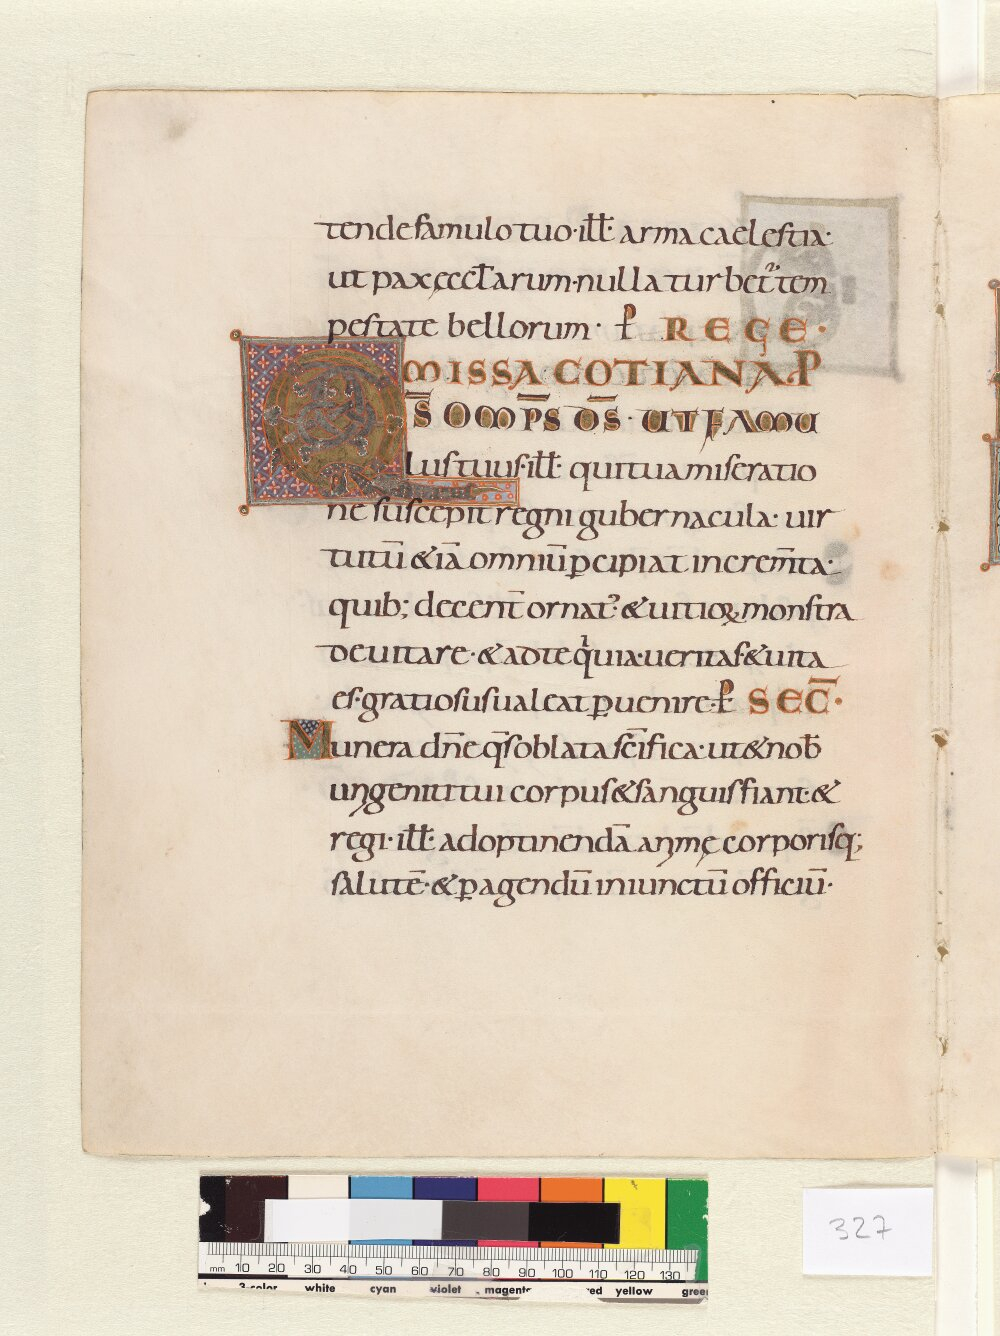 tende famulo tuo· ill̅· arma caelestia·
ut pax ęccl̅arum· nulla turbet᷑ tem
pestate bellorum· p̄ REGE·
MISSA COTIANA· P
Q̄S OMP̄S D̄S· UT FAMU
lus tuus· ill̅· qui tua miseratio
ne suscepit regni gubernacula· uir
tutū &iā omniū pcipiat increm̄ta·
quib; decent̄ ornat᷑· & uitioꝝ monstra
deuitare· & ad te q̓ uia· ueritas· & uita
es· gratiosus ualeat ꝑuenire· p̄ SEC̄·
Munera dn̄e q̄s oblata sc̄ifica· ut & nob̄
unigeniti tui corpus & sanguis fiant· &
regi· ill̅· ad optinendā animę corporisq;
salutē· & ꝑagendū iniunctū officiū·
327
mm 10 20 30 40 50 60 70 80 90 100 110 120 130
3-color white cyan violet magenta red yellow green